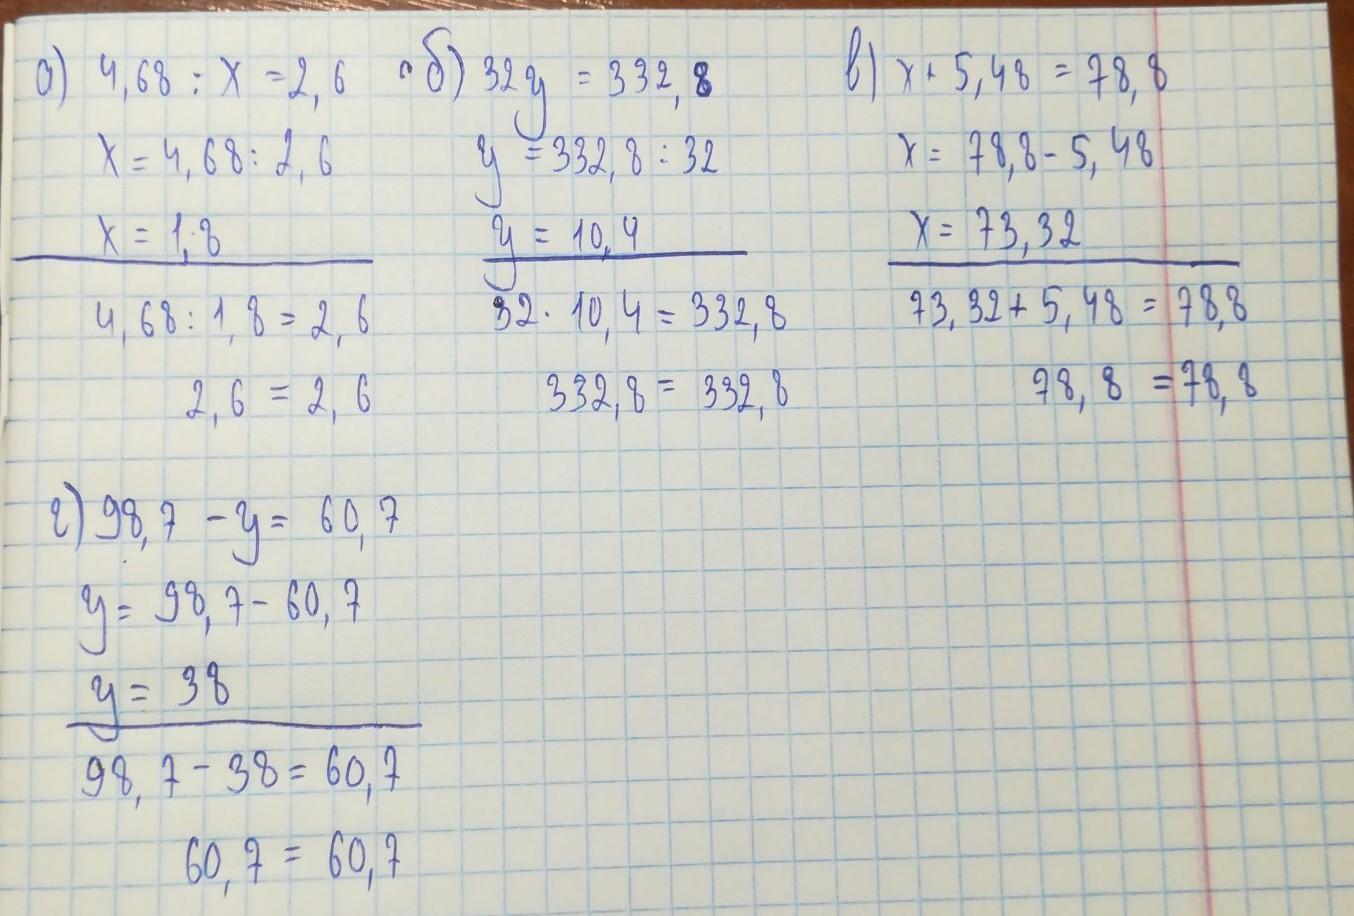 а) 4,68 : x = 2,6
x = 4,68 : 2,6
x = 1,8
4,68 : 1,8 = 2,6
2,6 = 2,6
б) 32y = 332,8
y = 332,8 : 32
y = 10,4
32 · 10,4 = 332,8
332,8 = 332,8
в) x + 5,48 = 78,8
x = 78,8 - 5,48
x = 73,32
73,32 + 5,48 = 78,8
78,8 = 78,8
г) 98,7 - y = 60,7
y = 98,7 - 60,7
y = 38
98,7 - 38 = 60,7
60,7 = 60,7